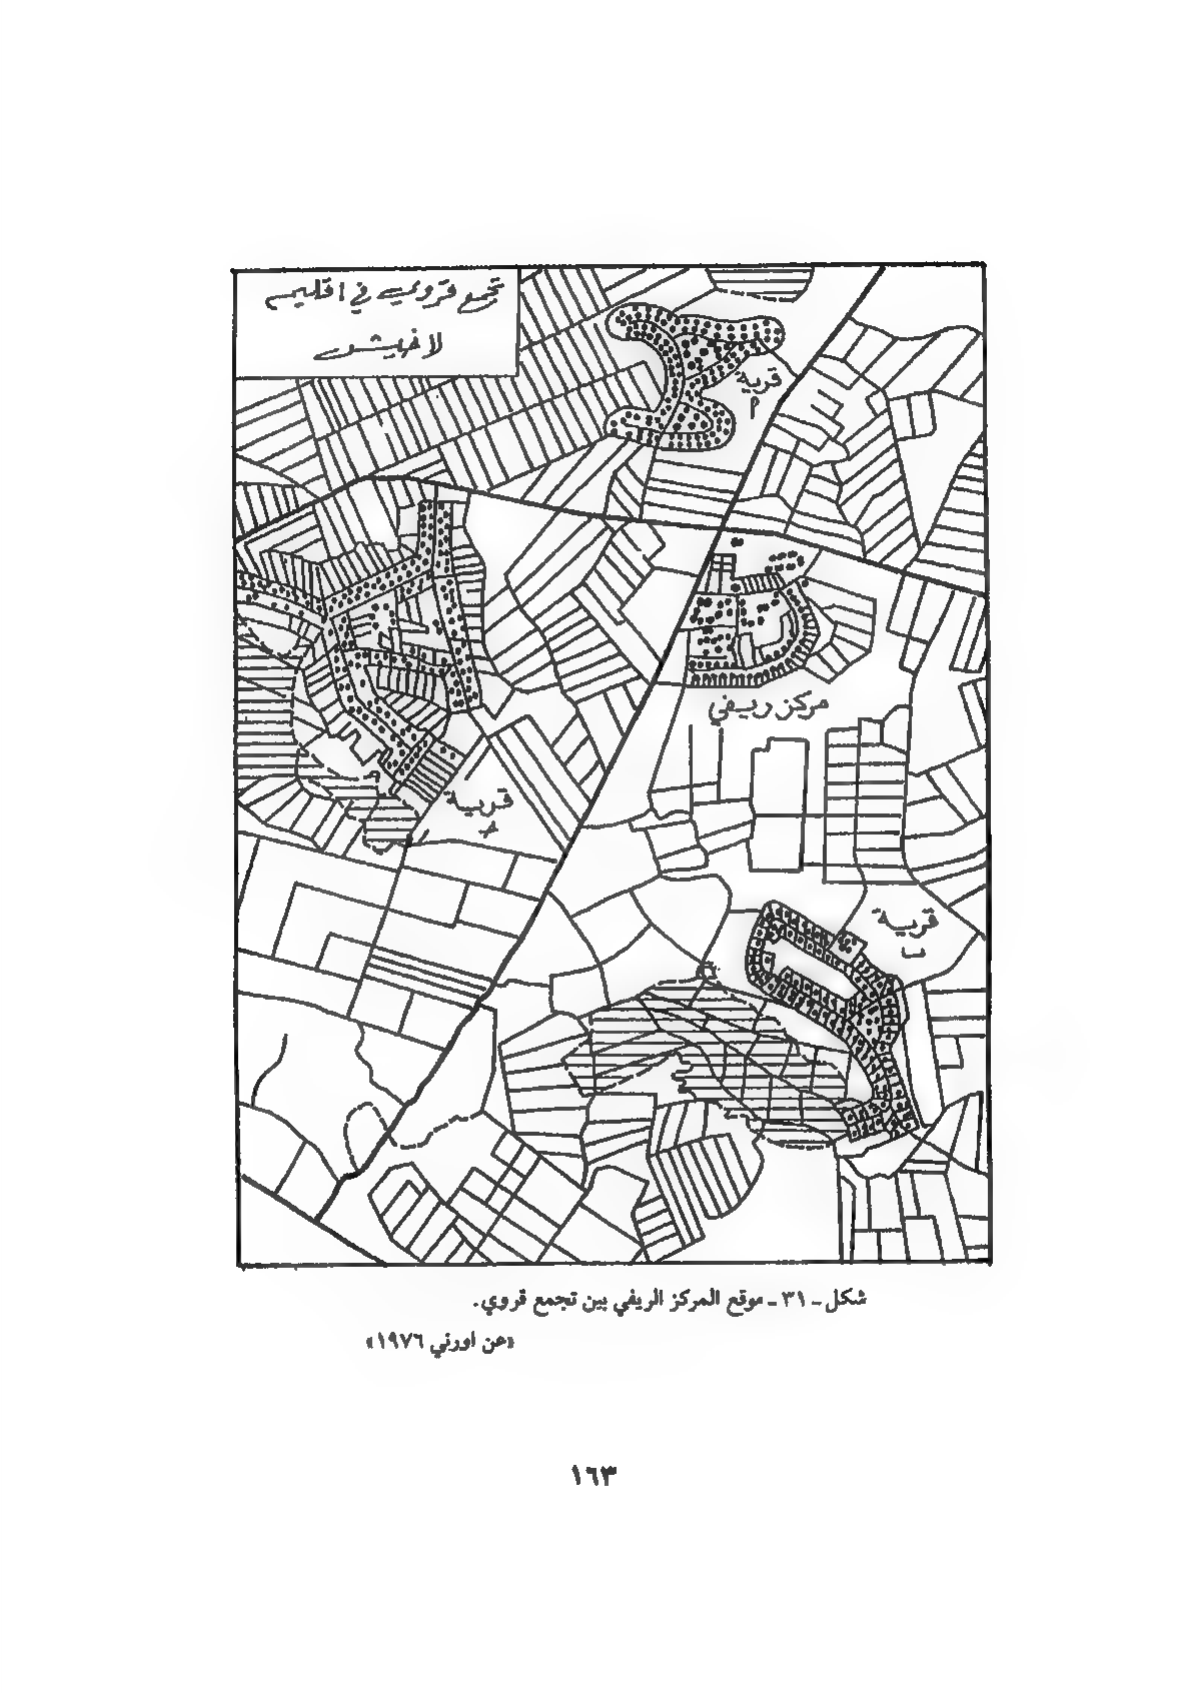 تجمع قروي في اقليم
لاخيش
قرية
أ
مركز ريفي
قرية
جـ
قرية
ب
شكل ـ ٣١ ـ موقع المركز الريفي بين تجمع قروي.
«عن اورني ١٩٧٦»
١٦٣